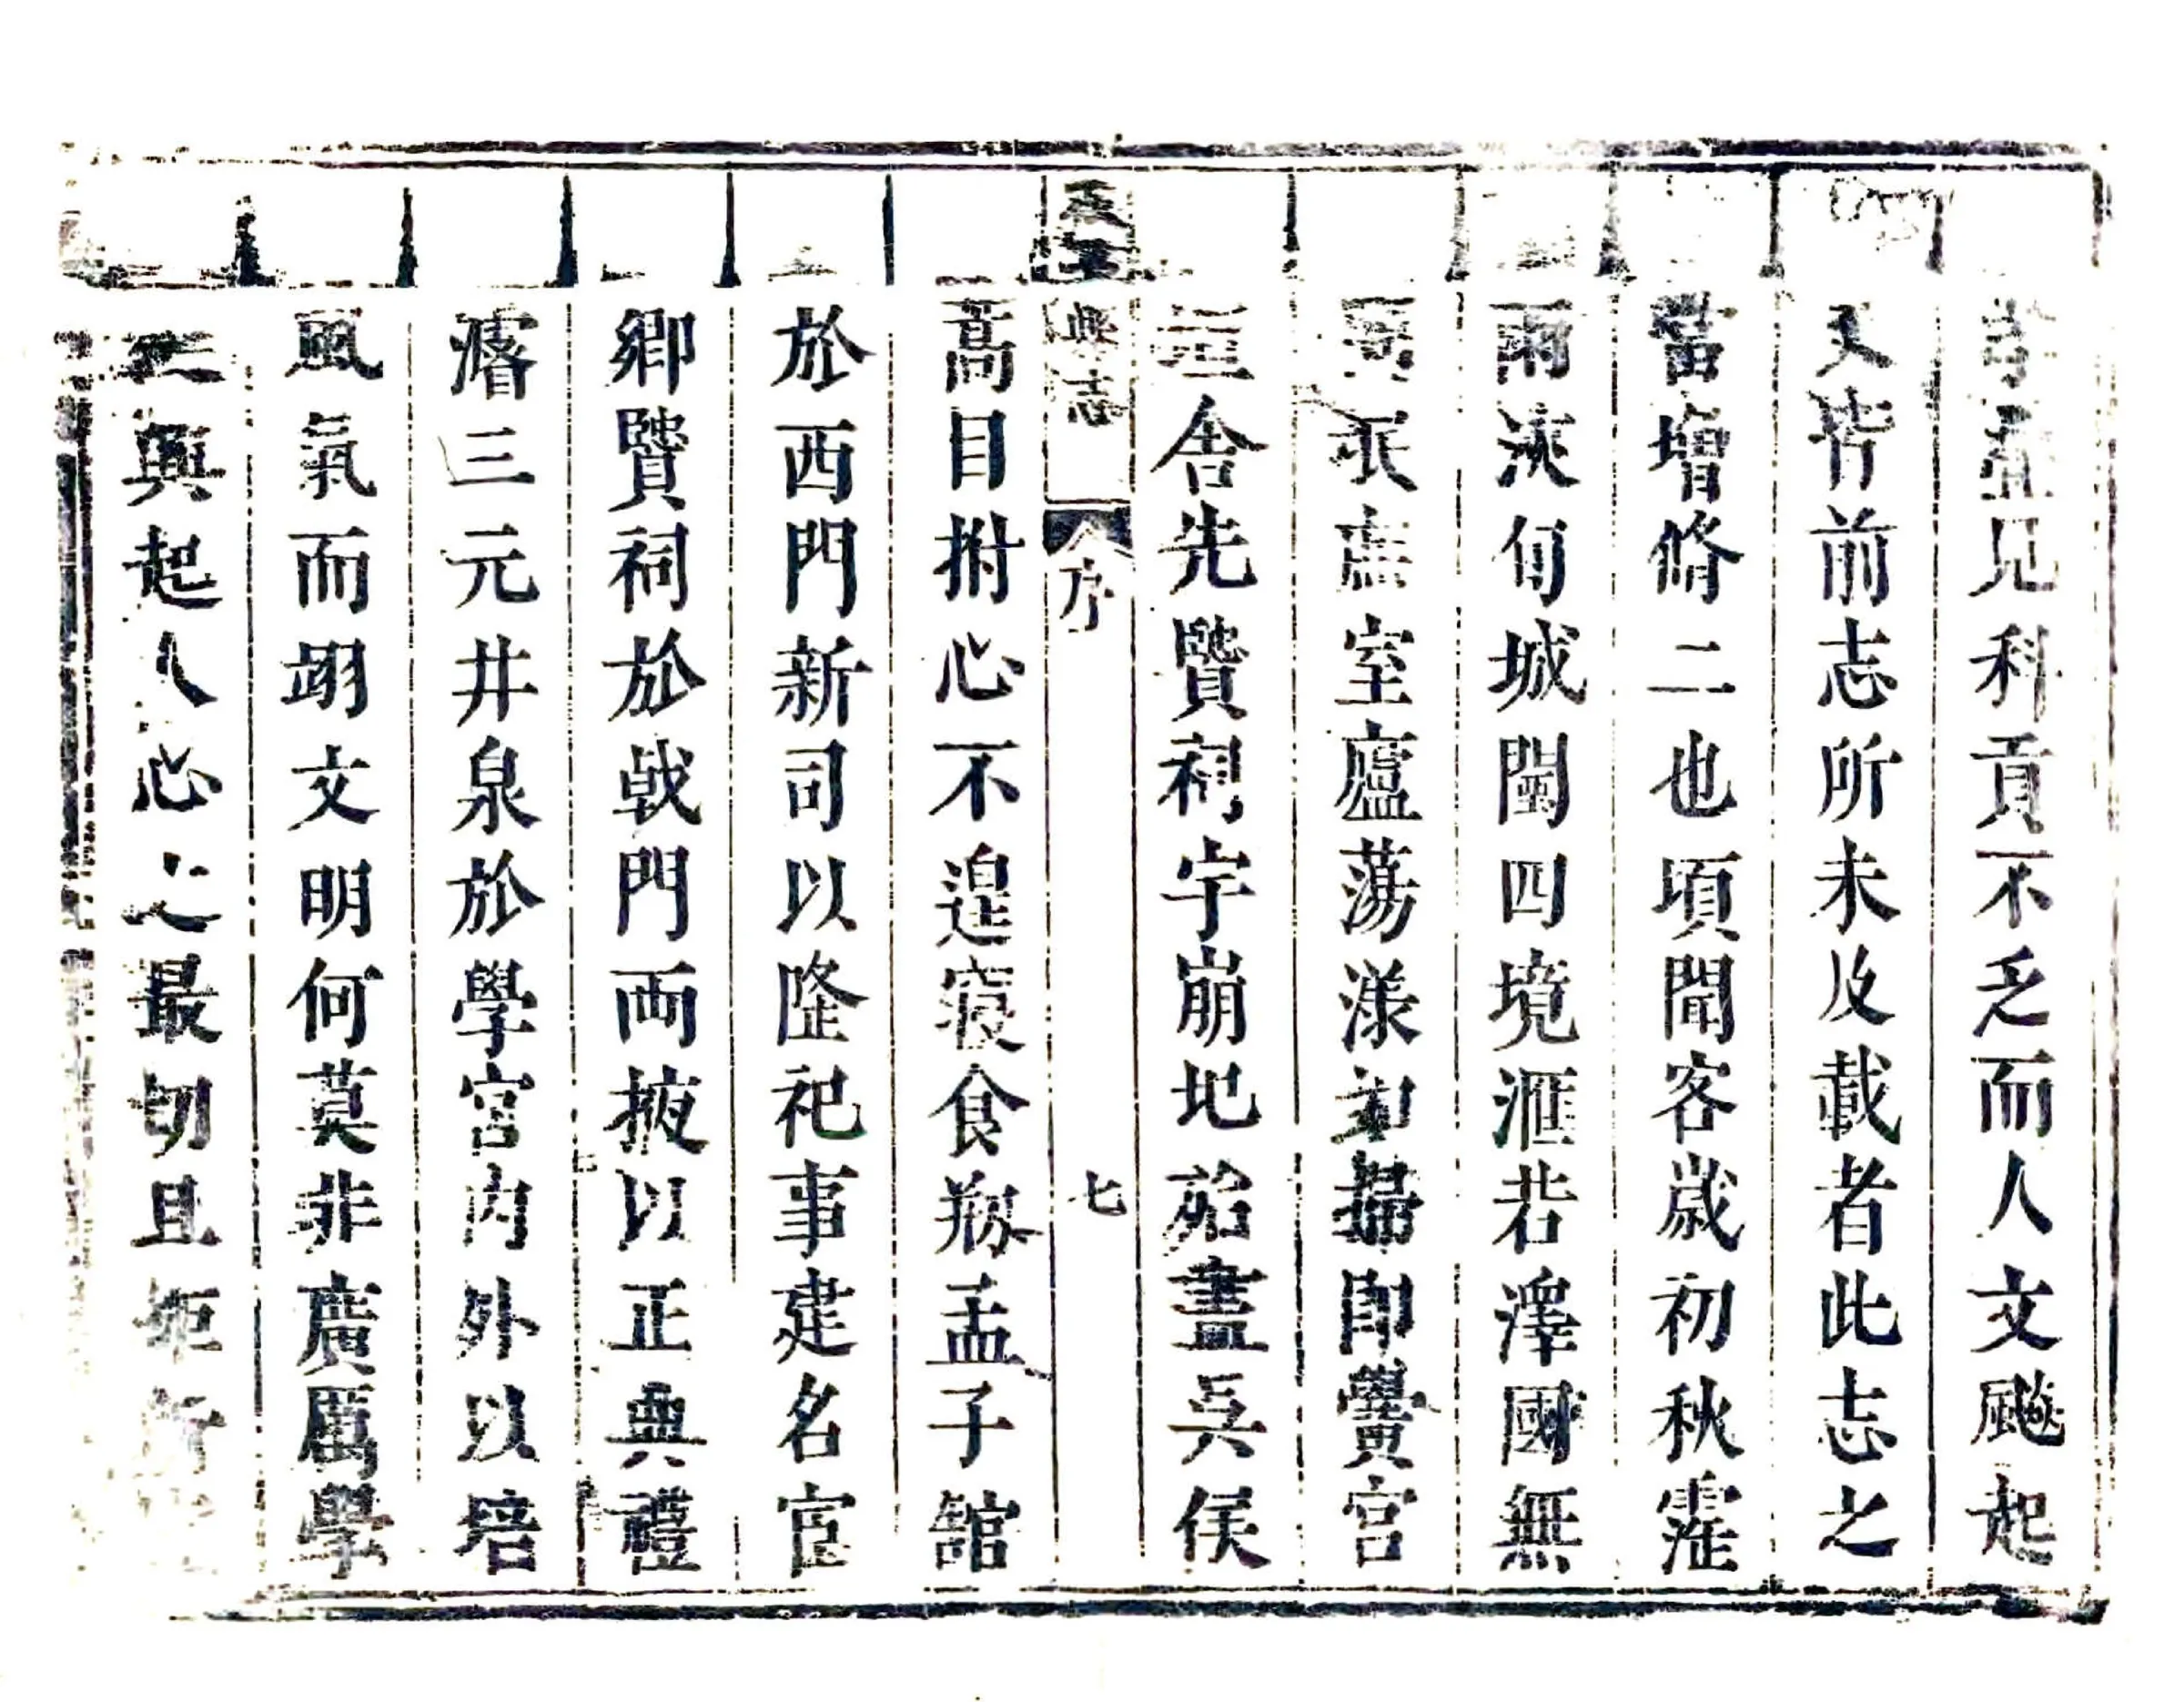 見科貢不乏而人文颷起
又皆前志所未及載者此志之
當增脩二也頃聞客歲初秋霪
雨浹旬城闉四境滙若澤國無
室廬蕩漾如掃即黌宮
舍先賢祠宇崩圮殆盡吳侯
興志 序 七
蒿目拊心不遑寢食剏孟子舘
於西門新司以隆祀事建名宦
鄉賢祠於戟門両掖以正典禮
濬三元井泉於學宮內外以培
風氣而翊文明何莫非廣厲學
興起人心之最切且